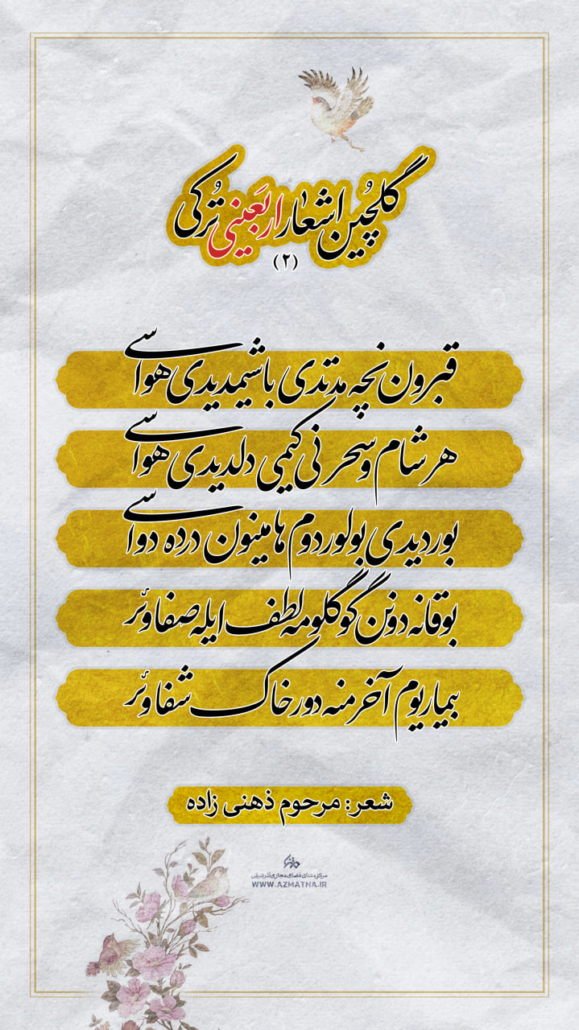 گلچین اشعار اربعینی تُرکی
(۲)
قبرون نچه مدتدی باشیمدیدی هواسی
هر شام و سحر نی کیمی دلدیدی هواسی
بوردیدی بولوردوم هامینون درده دواسی
بوقانه دونن گوگلومه لطف ایله صفا وئر
بیماریوم آخر منه دور خاک شفا وئر
شعر: مرحوم ذهنی زاده
WWW.AZMATHA.IR